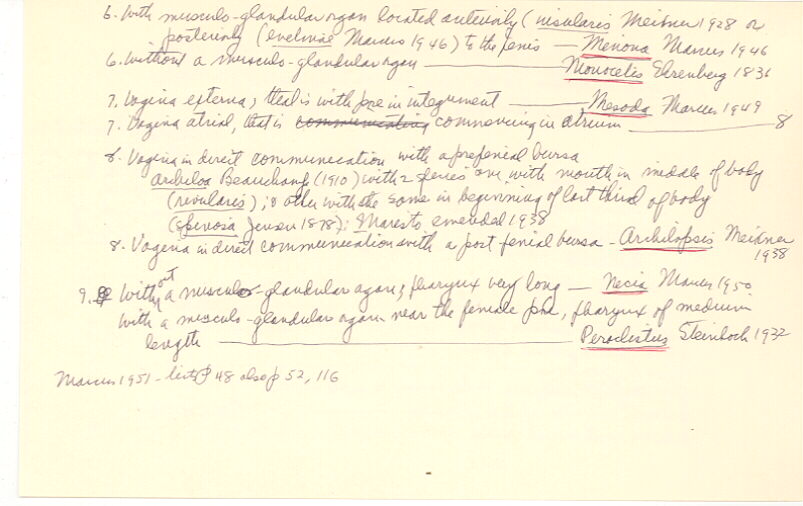 6. With musculo-glandular organ located anteriorly (insularis Meixner 1928 or
posteriorly (evelinae Marcus 1946) to the penis — Minona Marcus 1946
6. Without a musculo-glandular organ — Monocelis Ehrenberg 1836
7. Vagina externa, that is with pore in integument — Mesoda Marcus 1949
7. Vagina atrial, that is communicating commencing in atrium — 8
8. Vagina in direct communication with a prepenial bursa
Archiloa Beauchamp (1910) with 2 species one with mouth in middle of body
(rivularis); & other with the same in beginning of last third of body
(spinosa Jensen 1878); emended 1938
8. Vagina in direct communication with a post penial bursa - Archilopsis Meixner
1938
9. Without a musculo-glandular organ, pharynx very long — Necia Marcus 1950
With a musculo-glandular organ near the female pore, pharynx of medium
length — Peroclistus Steinbock 1932
Marcus 1951 - lists p 48 also p 52, 116